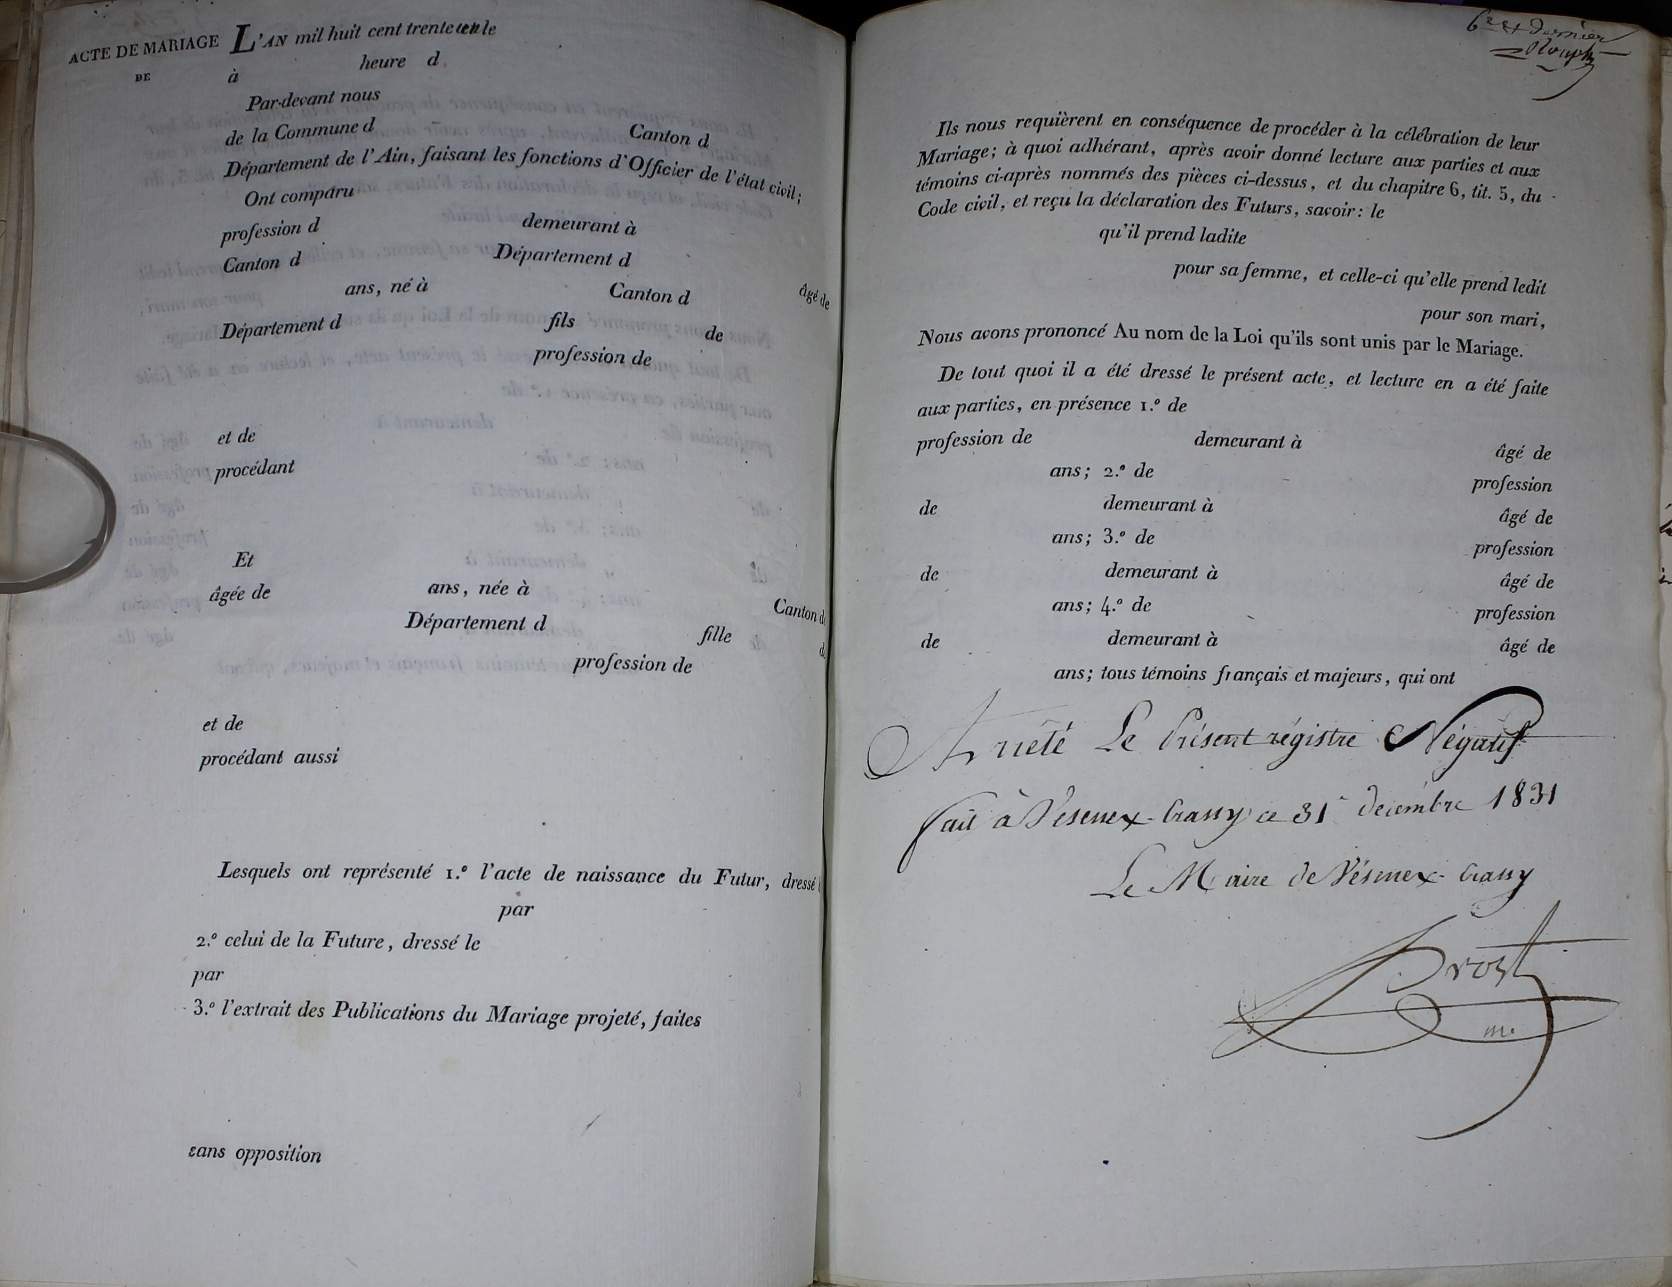 ACTE DE MARIAGE L'AN mil huit cent trente
DE à heure d
Par-devant nous
de la Commune d Canton d
Département de l'Ain, faisant les fonctions d'Officier de l'état civil;
Ont comparu
profession d demeurant à
Canton d Département d âgé de
ans, né à Canton d
Département d fils de
profession de
et de
procédant
Et
âgée de ans, née à Canton d
Département d fille d
profession de
et de
procédant aussi
Lesquels ont représenté 1.º l'acte de naissance du Futur, dressé
par
2.º celui de la Future, dressé le
par
3.º l'extrait des Publications du Mariage projeté, faites
sans opposition
6e et dernier
Ils nous requièrent en conséquence de procéder à la célébration de leur
Mariage; à quoi adhérant, après avoir donné lecture aux parties et aux
témoins ci-après nommés des pièces ci-dessus, et du chapitre 6, tit. 5, du
Code civil, et reçu la déclaration des Futurs, savoir: le
qu'il prend ladite
pour sa femme, et celle-ci qu'elle prend ledit
pour son mari,
Nous avons prononcé Au nom de la Loi qu'ils sont unis par le Mariage.
De tout quoi il a été dressé le présent acte, et lecture en a été faite
aux parties, en présence 1.º de
profession de demeurant à âgé de
ans; 2.º de profession
de demeurant à âgé de
ans; 3.º de profession
de demeurant à âgé de
ans; 4.º de profession
de demeurant à âgé de
ans; tous témoins français et majeurs, qui ont
Arrêté Le Présent régistre Négatif
fait à Vesenex-Crassy ce 31 decembre 1831
Le Maire de Vésenex-Crassy